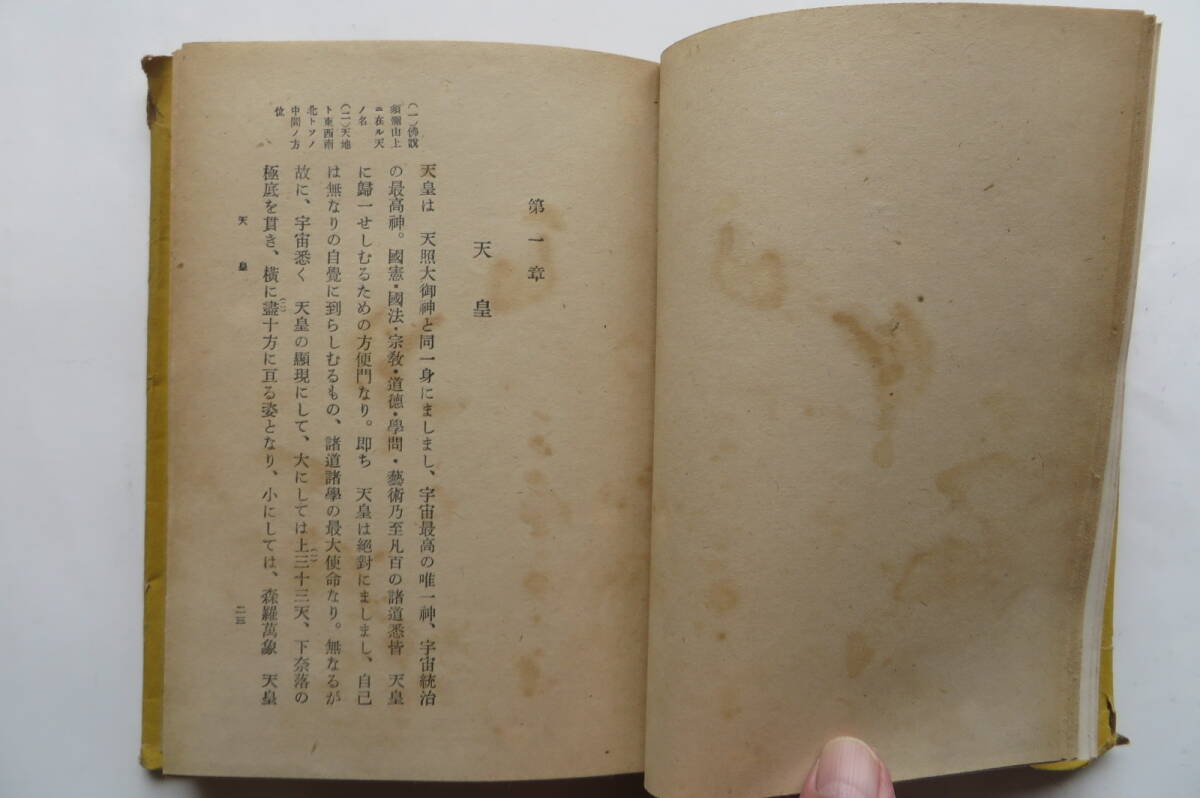 第一章
天皇
天皇は　天照大御神と同一身にましまし、宇宙最高の唯一神、宇宙統治
の最高神。國憲・國法・宗敎・道德・學問・藝術乃至凡百の諸道悉皆　天皇
に歸一せしむるための方便門なり。卽ち　天皇は絕對にましまし、自己
は無なりの自覺に到らしむるもの、諸道諸學の最大使命なり。無なるが
故に、宇宙悉く　天皇の顯現にして、大にしては上三十三天、下奈落の
(一)
極底を貫き、橫に盡十方に亘る姿となり、小にしては、森羅萬象　天皇
(二)
(一)佛說
須彌山上
ニ在ル天
ノ名
(二)天地
ト東西南
北トソノ
中間ノ方
位
天皇
二三